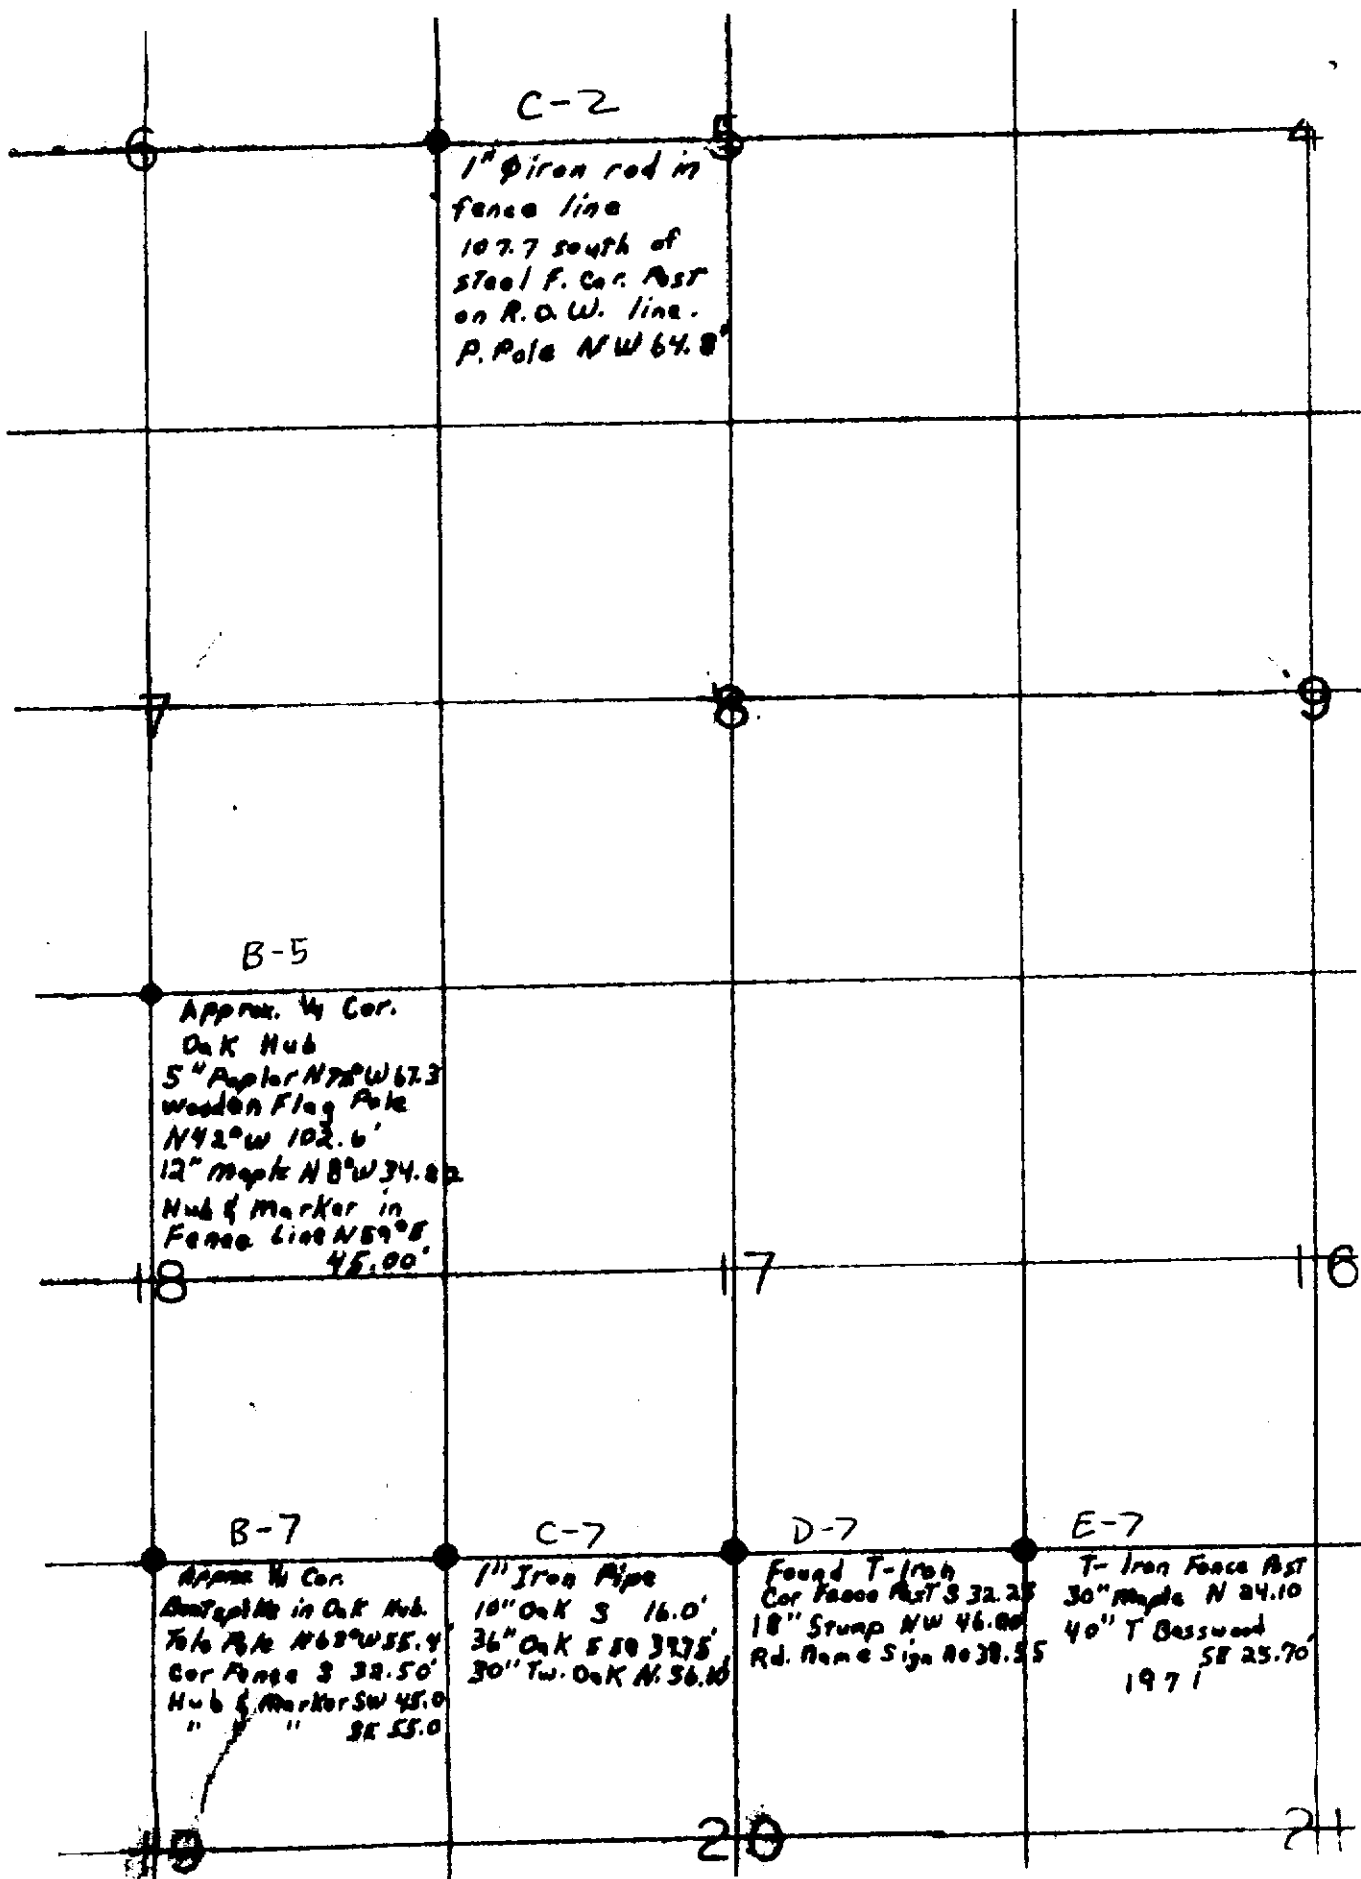 C-2
6
5
4
1" Ø iron rod in
fence line
107.7 south of
steel F. Cor. Post
on R.O.W. line.
P. Pole NW 64.8'
7
8
9
B-5
Approx. ¼ Cor.
Oak Hub
5" Poplar W 67.3
wooden Flag Pole
N42°W 102.6'
12" Maple N8°W
Hub & Marker in
Fence Line N59°E
45.00'
18
17
16
B-7
Approx ¼ Cor.
in Oak Hub.
Tele Pole 55.4'
Cor Fence S 32.50'
Hub & Marker SW 45.0
" " " SE 55.0
C-7
1" Iron Pipe
10" Oak S 16.0'
36" Oak
30" Tw. Oak N.
D-7
Found T-Iron
Cor Fence Post S 32.25
18" Stump NW
Rd. Name Sign
E-7
T-Iron Fence Post
30" Maple N 24.10
40" T Basswood
SE 25.70'
1971
19
20
21